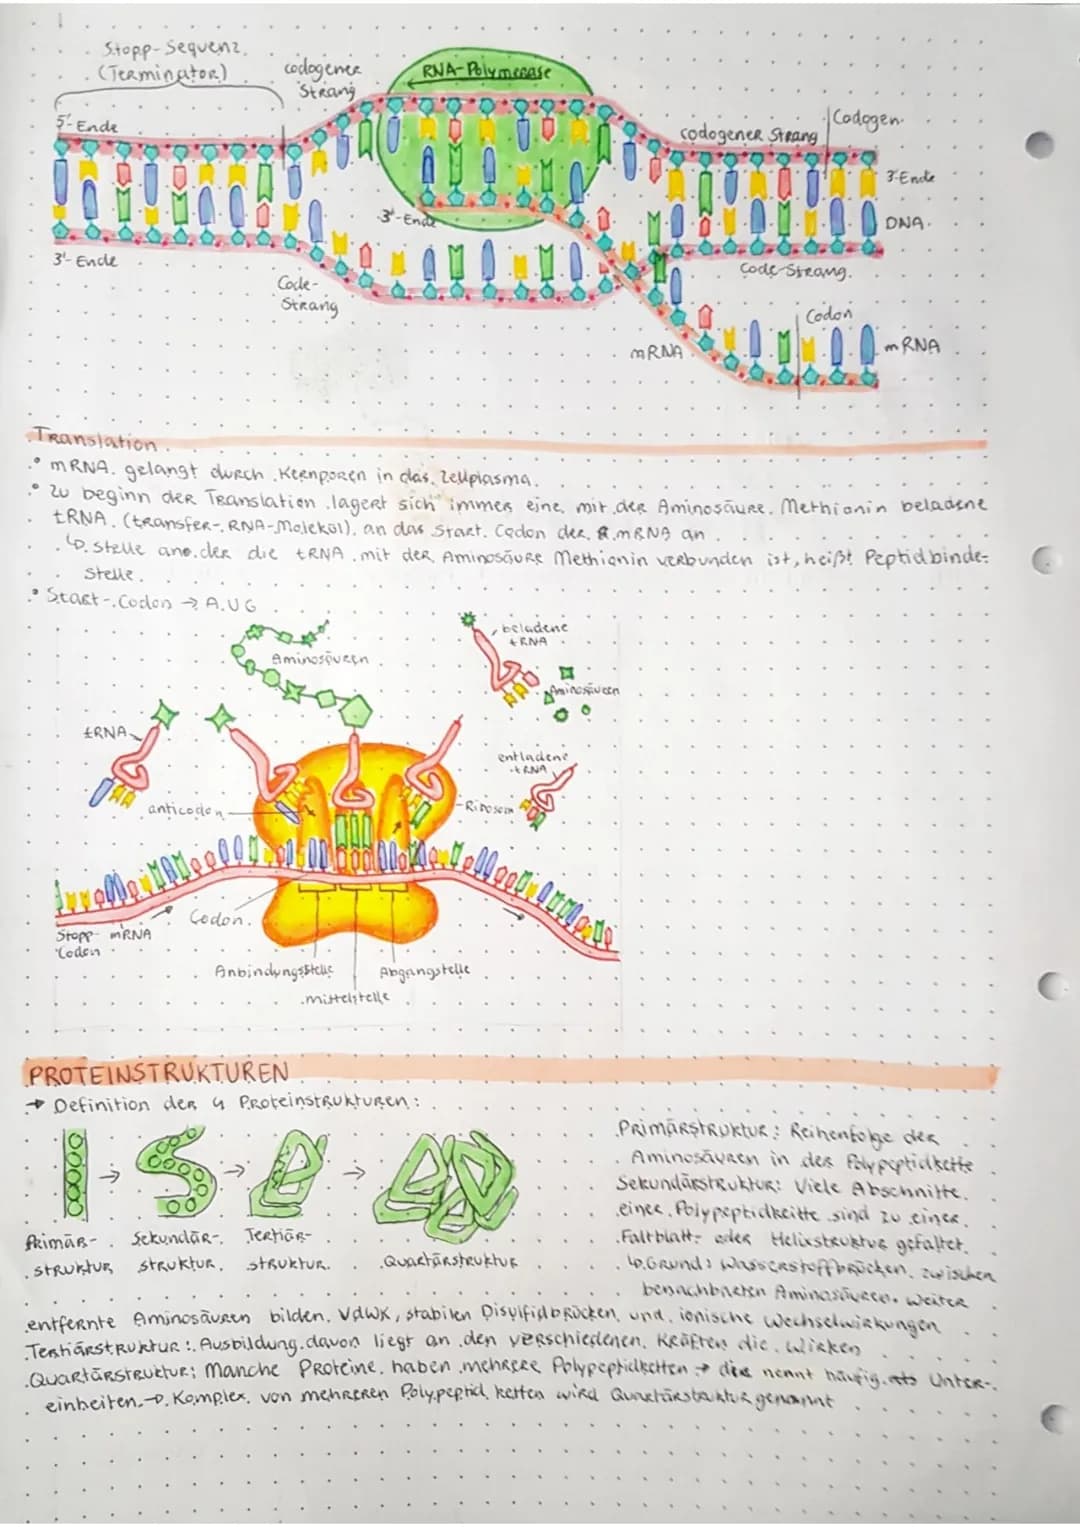 Stopp-Sequenz
(Terminator)
codogener
Strang
RNA-Polymerase
5'-Ende
codogener Strang
Codogen
3'-Ende
DNA
3'-Ende
3'-Ende
Code-
Strang
Code-Strang
Codon
mRNA
mRNA
Translation
• mRNA gelangt durch Kernporen in das Zellplasma.
• zu beginn der Translation lagert sich immer eine mit der Aminosäure Methionin beladene
tRNA (transfer-RNA-Molekül) an das Start Codon der mRNA an
↳ Stelle an der die tRNA mit der Aminosäure Methionin verbunden ist, heißt Peptidbinde-
stelle.
• Start-Codon → AUG
Aminosäuren
beladene
tRNA
Aminosäuren
tRNA
entladene
tRNA
anticodon
Ribosom
Codon
Stopp-
Codon
mRNA
Anbindungsstelle
Abgangstelle
mittelstelle
PROTEINSTRUKTUREN
→ Definition der 4 Proteinstrukturen:
Primär-
struktur
Sekundär-
struktur
Tertiär-
struktur
Quartärstruktur
Primärstruktur: Reihenfolge der
Aminosäuren in der Polypeptidkette
Sekundärstruktur: Viele Abschnitte
einer Polypeptidkeitte sind zu einer
Faltblatt- oder Helixstruktur gefaltet.
↳ Grund: Wasserstoffbrücken zwischen
benachbarten Aminosäuren. Weiter
entfernte Aminosäuren bilden VdWK, stabilen Disulfidbrücken und ionische Wechselwirkungen
Tertiärstruktur: Ausbildung davon liegt an den verschiedenen Kräften die wirken
Quartärstruktur: Manche Proteine haben mehrere Polypeptidketten → nennt häufig Unter-
einheiten → Komplex von mehreren Polypeptid ketten wird Quartärstruktur genannt